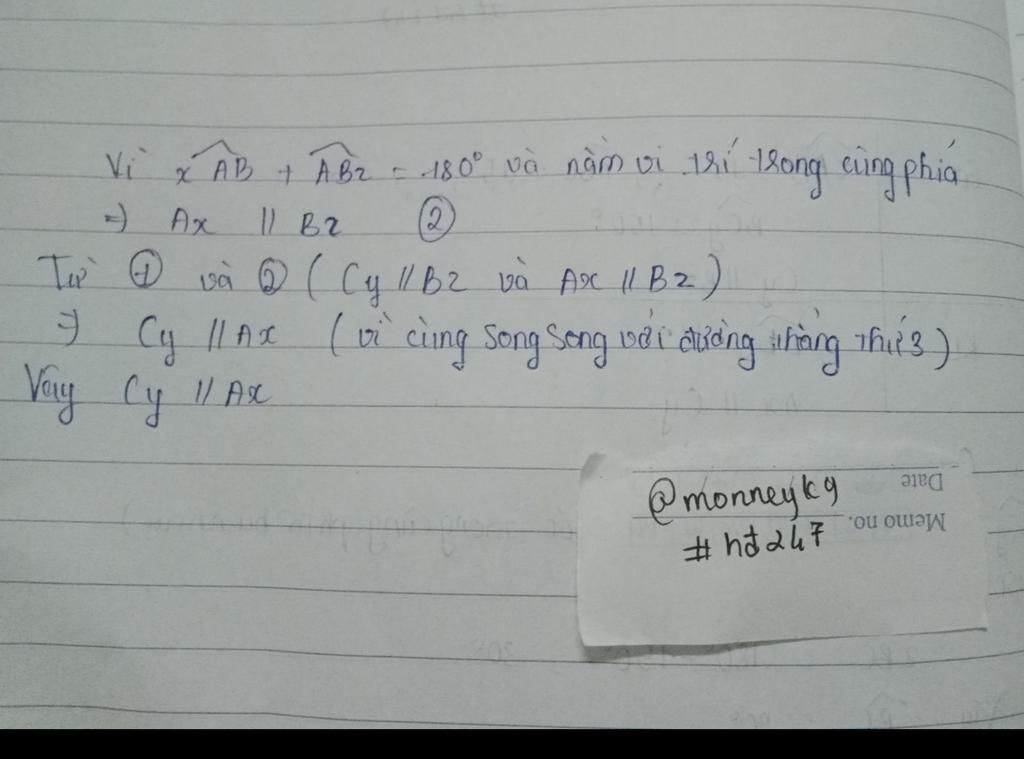 Vì xAB + ABz = 180° và nằm vị trí trong cùng phía
=) Ax // Bz ②
Từ ① và ② ( Cy // Bz và Ax // Bz )
=) Cy // Ax ( vì cùng song song với đường thẳng thứ 3 )
Vậy Cy // Ax
@monneyk9
# hđ247
Date
Memo no.